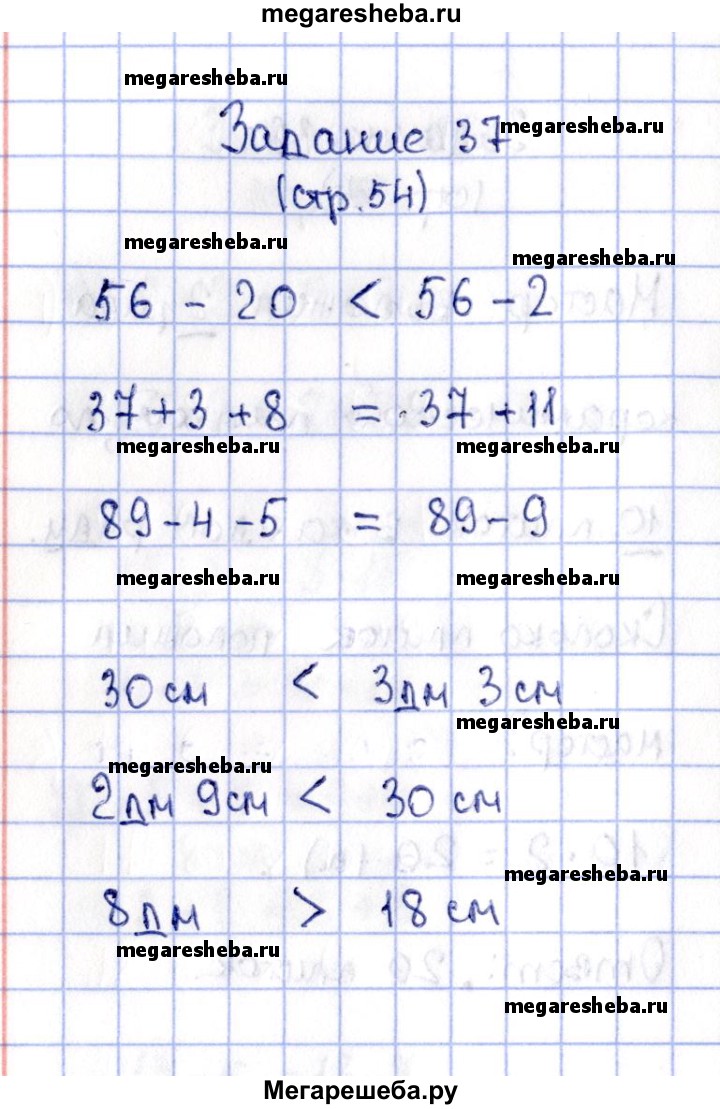 megaresheba.ru
megaresheba.ru
Задание 37
megaresheba.ru
(стр. 54)
megaresheba.ru
megaresheba.ru
56 - 20 < 56 - 2
37 + 3 + 8 = 37 + 11
megaresheba.ru
megaresheba.ru
89 - 4 - 5 = 89 - 9
megaresheba.ru
megaresheba.ru
30 см < 3 дм 3 см
megaresheba.ru
megaresheba.ru
2 дм 9 см < 30 см
megaresheba.ru
8 дм > 18 см
megaresheba.ru
megaresheba.ru
Мегарешеба.ру